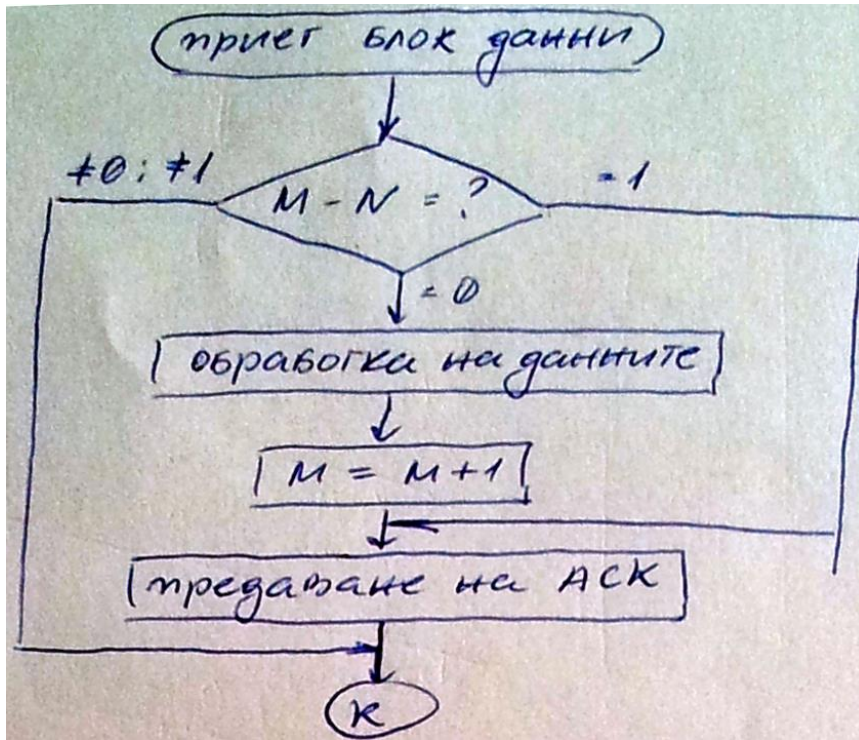 приет блок данни
≠0; ≠1
M - N = ?
= 1
= 0
обработка на данните
M = M+1
предаване на ACK
K